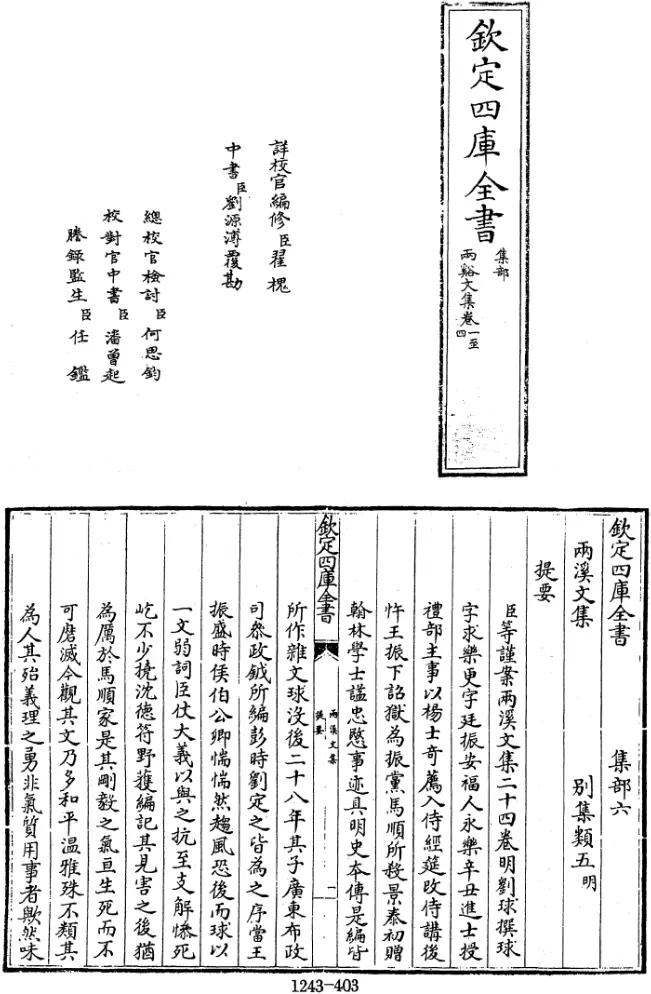 欽定四庫全書
集部
兩谿文集卷一至四
詳校官編修臣翟槐
中書臣劉源溥覆勘
總校官檢討臣何思鈞
校對官中書臣潘曾起
謄錄監生臣任鑑
欽定四庫全書 集部六
兩溪文集 別集類五明
提要
臣等謹案兩溪文集二十四卷明劉球撰球
字求樂更字廷振安福人永樂辛丑進士授
禮部主事以楊士奇薦入侍經筵改侍講後
忤王振下詔獄為振黨馬順所殺景泰初贈
翰林學士諡忠愍事迹具明史本傳是編皆
欽定四庫全書
兩溪文集
提要
一
所作雜文球沒後二十八年其子廣東布政
司叅政鉞所編彭時劉定之皆為之序當王
振盛時侯伯公卿惴惴然趨風恐後而球以
一文弱詞臣仗大義以與之抗至支解慘死
屹不少撓沈德符野獲編記其見害之後猶
為厲於馬順家是其剛毅之氣亘生死而不
可磨滅今觀其文乃多和平溫雅殊不類其
為人其殆義理之勇非氣質用事者歟然味
1243-403